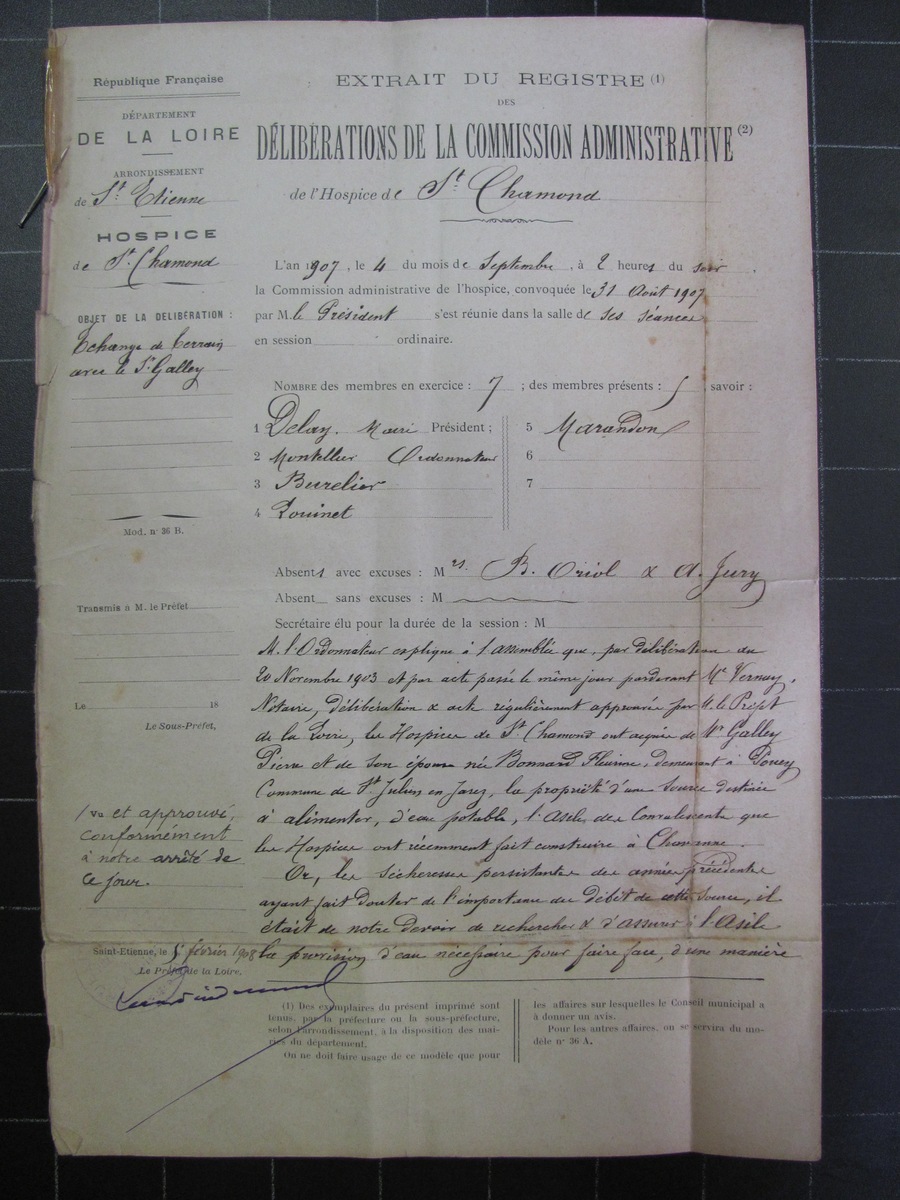 République Française
DÉPARTEMENT
DE LA LOIRE
ARRONDISSEMENT
de St. Etienne
HOSPICE
de St. Chamond
OBJET DE LA DÉLIBÉRATION :
Echange de terrain
avec le Sr Galley
Mod. n° 36 B.
Transmis à M. le Préfet
Le 18
Le Sous-Préfet,
Vu et approuvé,
conformément
à notre arrêté de
ce jour.
Saint-Etienne, le 5 février 1908
Le Préfet de la Loire.
EXTRAIT DU REGISTRE (1)
DES
DÉLIBÉRATIONS DE LA COMMISSION ADMINISTRATIVE (2)
de l'Hospice de St. Chamond
L'an 1907, le 4 du mois de Septembre, à 2 heures du soir
la Commission administrative de l'hospice, convoquée le 31 Août 1907
par M. le Président s'est réunie dans la salle de ses séances
en session ordinaire.
NOMBRE des membres en exercice : 7 ; des membres présents : 5 savoir :
1 Delay. Maire Président ;
2 Montellier Ordonnateur
3 Burelier
4 Pouinet
5 Marandon
6
7
Absents avec excuses : Mrs. B. Oriol & A. Jury
Absent sans excuses : M
Secrétaire élu pour la durée de la session : M
M. l'Ordonnateur explique à l'assemblée que, par délibération du
20 Novembre 1903 et par acte passé le même jour pardevant Me Vernay,
Notaire, délibération & acte régulièrement approuvés par M. le Préfet
de la Loire, les Hospices de St. Chamond ont acquis de Mr Galley
Pierre et de son épouse née Bonnard Fleurine, demeurant à
Commune de St. Julien en Jarez, la propriété d'une Source destinée
à alimenter, d'eau potable, l'Asile des Convalescents que
les Hospices ont récemment fait construire à Chavanne.
Or, les sécheresses persistantes des années précédentes
ayant fait douter de l'importance du débit de cette source, il
était de notre devoir de rechercher & d'assurer à l'Asile
la provision d'eau nécessaire pour faire face, d'une manière
(1) Des exemplaires du présent imprimé sont
tenus, par la préfecture ou la sous-préfecture,
selon l'arrondissement, à la disposition des mai-
ries du département.
On ne doit faire usage de ce modèle que pour
les affaires sur lesquelles le Conseil municipal a
à donner un avis.
Pour les autres affaires, on se servira du mo-
dèle n° 36 A.